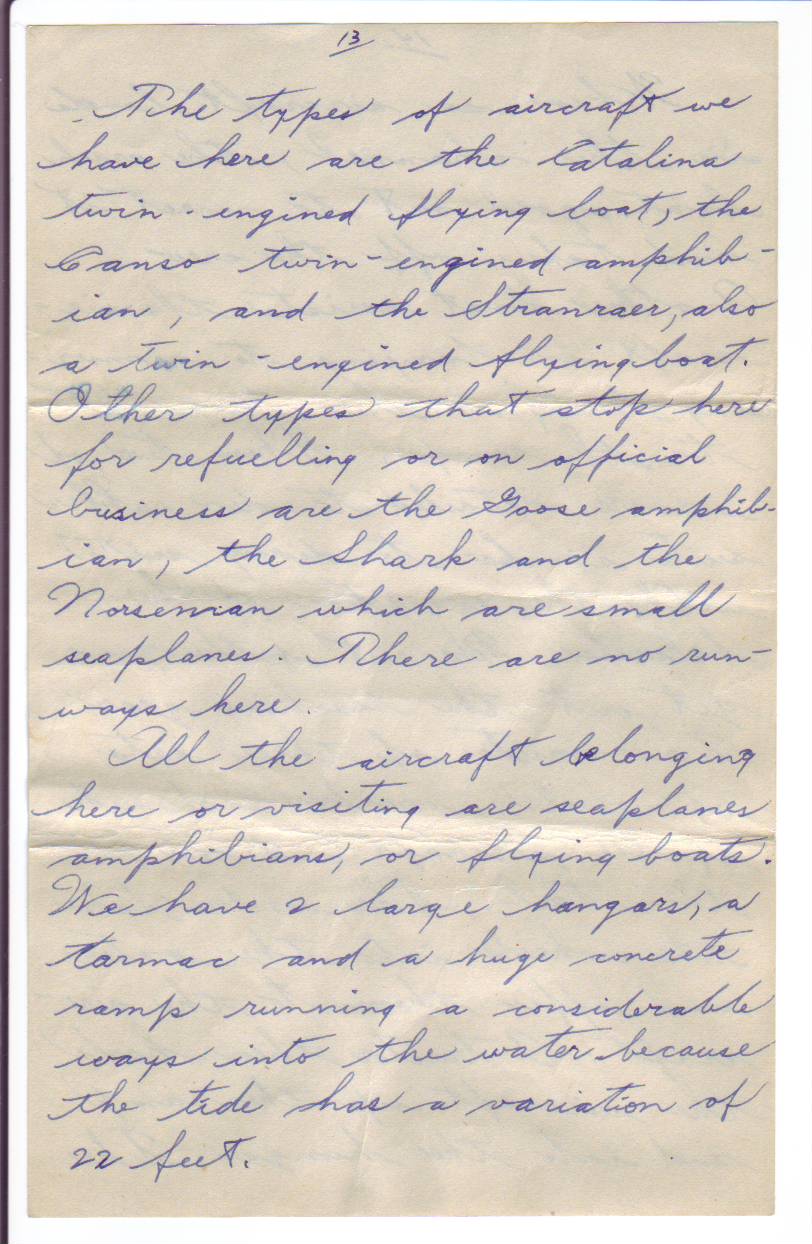 13
The types of aircraft we
have here are the Catalina
twin-engined flying boat, the
Canso twin-engined amphib-
ian, and the Stranraer, also
a twin-engined flying boat.
Other types that stop here
for refuelling or on official
business are the Goose amphib-
ian, the Shark and the
Norseman which are small
seaplanes. There are no run-
ways here.
All the aircraft belonging
here or visiting are seaplanes
amphibians, or flying boats.
We have 2 large hangars, a
tarmac and a huge concrete
ramp running a considerable
ways into the water because
the tide has a variation of
22 feet.